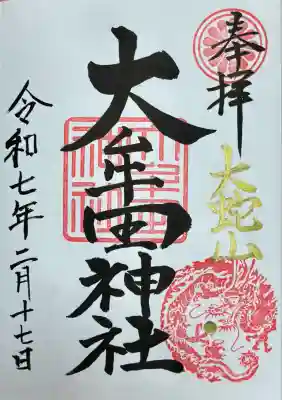 奉拝
大蛇山
大牟田神社
令和七年二月十七日